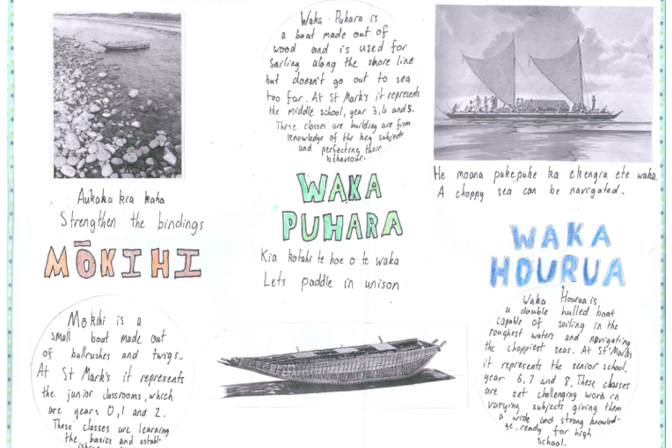 Aukaha kia kaha
Strengthen the bindings
MŌKIHI
Mōkihi is a
small boat made out
of bullrushes and twigs.
At St Mark's it represents
the junior classrooms, which
are years 0, 1 and 2.
These classes are learning
the basics and establ-
Waka Puhara is
a boat made out of
wood and is used for
sailing along the shore line
but doesn't go out to sea
too far. At St Mark's it represents
the middle school, year 3, 4 and 5.
These classes are building are firm
knowledge of the key subjects
and perfecting their
behaviour.
WAKA
PUHARA
Kia kotahi te hoe o te waka
Lets paddle in unison
He moana pukepuke ka ekengia ete waka.
A choppy sea can be navigated.
WAKA
HOURUA
Waka Hourua is
a double hulled boat
capable of sailing in the
roughest waters and navigating
the choppiest seas. At St Mark's
it represents the senior school,
year 6, 7 and 8. These classes
are set challenging work in
varying subjects giving them
a wide and strong knowled-
ge, ready for high
school.